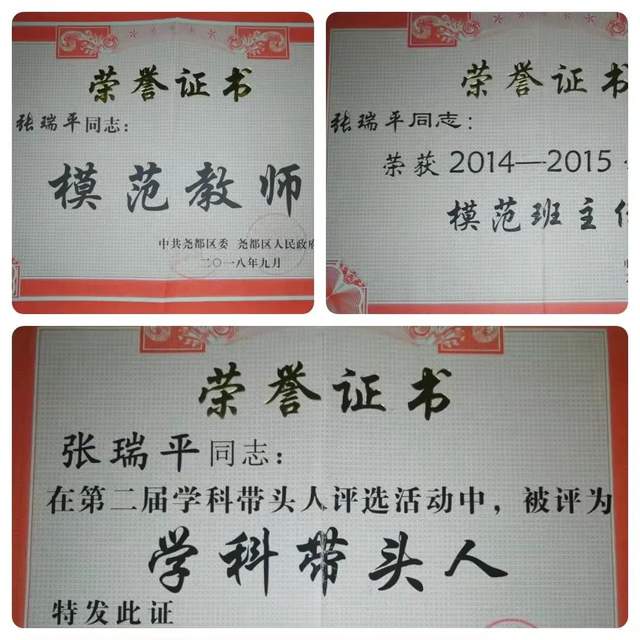 荣誉证书
张瑞平同志:
模范教师
中共尧都区委 尧都区人民政府
二〇一八年九月
荣誉证书
张瑞平同志:
荣获2014—2015
模范班主任
荣誉证书
张瑞平同志:
在第二届学科带头人评选活动中,被评为
学科带头人
特发此证